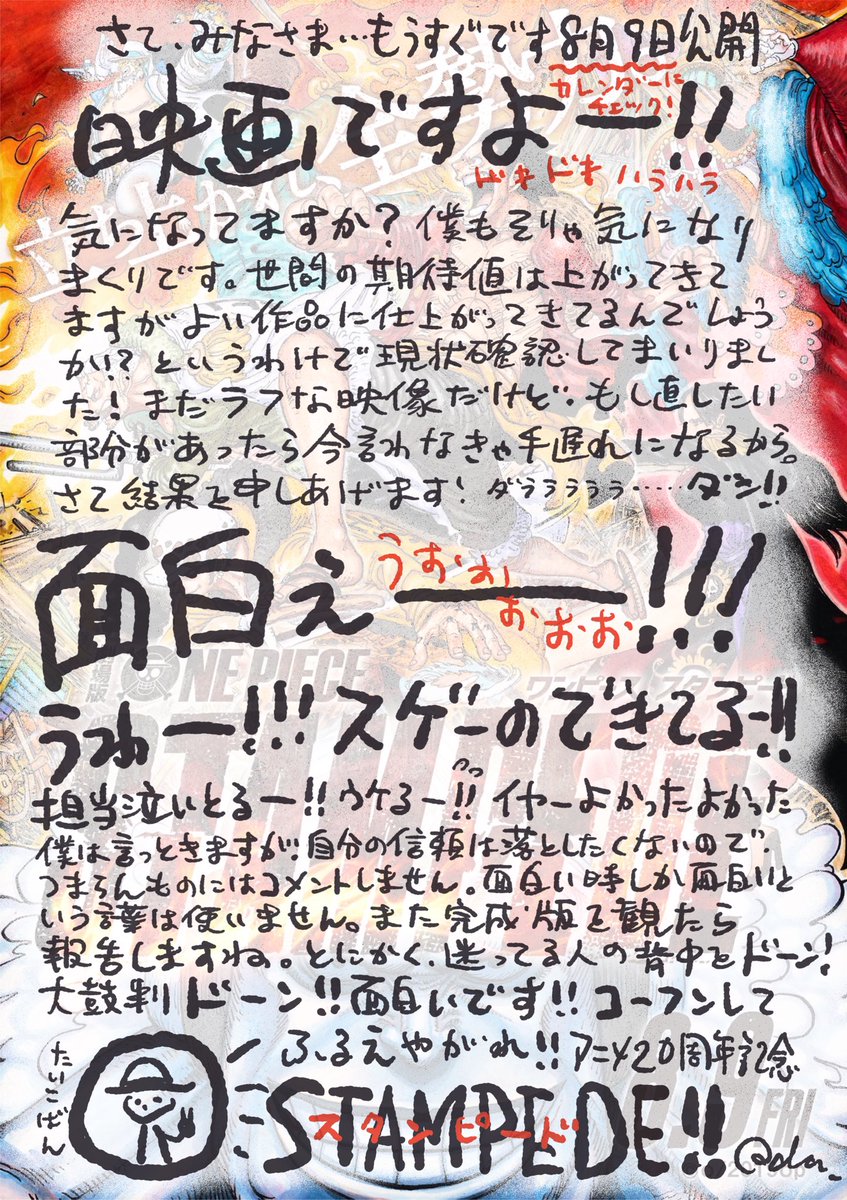 さて、みなさま…もうすぐです8月9日公開
カレンダーに
チェック!
映画ですよー!!
ドキドキ ハラハラ
気になってますか? 僕もそりゃ気になり
まくりです。世間の期待値は上がってきて
ますがよい作品に仕上がってきてるんでしょう
かい? というわけで現状確認してまいりまし
た! まだラフな映像だけど、もし直したい
部分があったら今言わなきゃ手遅れになるから。
さて結果を申しあげます! ダララララララ……ダン!!
面白ぇ――!!!
うおおおおお
ONE PIECE
うわー!!! スゲーのできてるー!!
担当泣いとるー!! ウケるー!! イヤーよかったよかった
僕は言っときますが、自分の信頼は落としたくないので、
つまらんものにはコメントしません。面白い時しか面白いと
いう言葉は使いません。また完成版を観たら
報告しますね。とにかく、迷ってる人の背中をドーン!
太鼓判ドーン!! 面白いです!! コーフンして
ふるえやがれ!! アニメ20周年記念
たいこばん
STAMPEDE!!
スタンピード
8.9 FRI